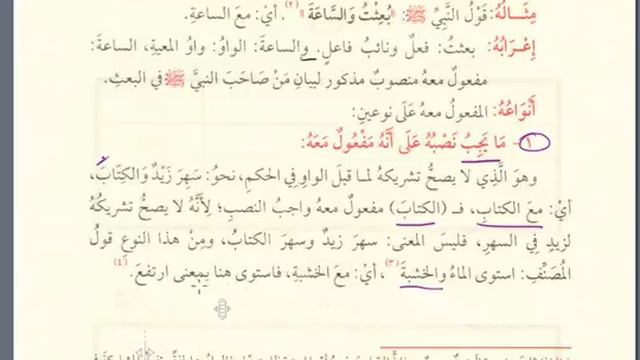 مِثَالُهُ: قَوْلُ النَّبِيِّ ﷺ: «بُعِثْتُ وَالسَّاعَةَ»(٢). أيْ: معَ الساعةِ.
إِعْرَابُهُ: بعثتُ: فعلٌ ونائبُ فاعلٍ. والساعةَ: الواوُ: واوُ المعيةِ، الساعةَ:
مفعولٌ معهُ منصوبٌ مذكورٌ لبيانِ مَنْ صَاحَبَ النبيَّ ﷺ في البعثِ.
أَنْوَاعُهُ: المفعولُ معهُ عَلَى نوعينِ:
١- مَا يَجِبُ نَصْبُهُ عَلَى أَنَّهُ مَفْعُولٌ مَعَهُ:
وهوَ الَّذِي لا يصحُّ تشريكهُ لما قبلَ الواوِ فِي الحكمِ، نحوُ: سَهِرَ زَيْدٌ وَالكِتَابَ،
أيْ: معَ الكتابِ، فـ (الكتابَ) مفعولٌ معهُ واجبُ النصبِ؛ لِأَنَّهُ لا يصحُّ تشريكُهُ
لزيدٍ فِي السهرِ، فليسَ المعنى: سهرَ زيدٌ وسهرَ الكتابُ، ومِنْ هذا النوعِ قولُ
المُصَنِّفِ: استوى الماءُ والخشبةَ(٣)، أيْ: معَ الخشبةِ، فاستوى هنا بمعنى ارتفعَ.(٤)